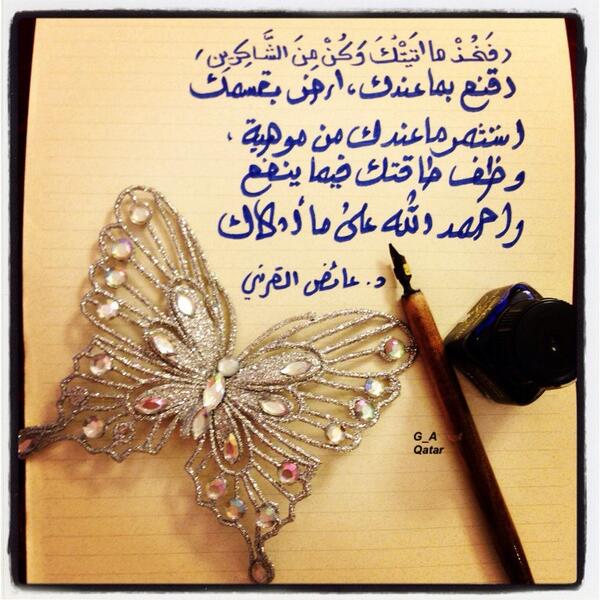 (فَخُذْ ما آتَيْتُكَ وَكُنْ مِنَ الشَّاكِرين)
اقنع بما عندك، ارض بقسمك
استثمر ما عندك من موهبة،
وظف طاقتك فيما ينفع
واحمد الله على ما أولاك
د. عائض القرني
G_A
Qatar